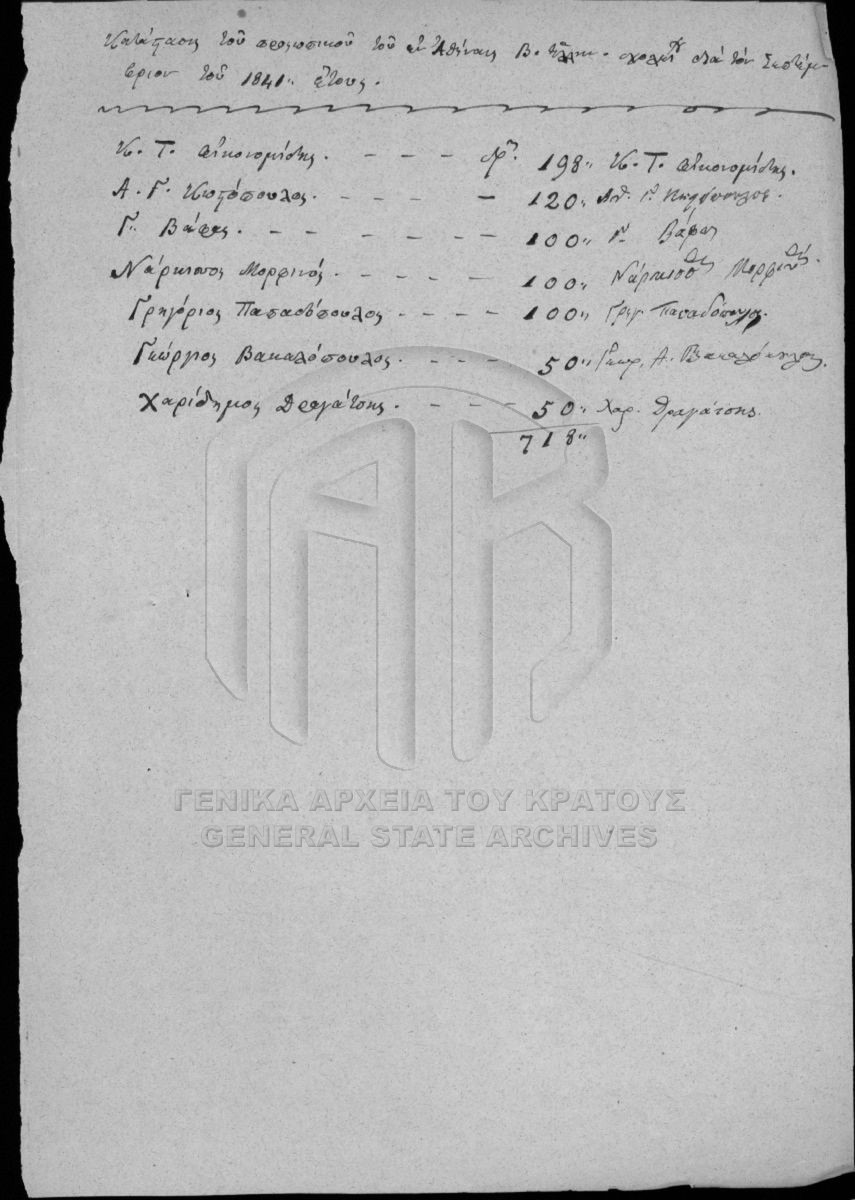 Κατάστασις τοῦ προσωπικοῦ τοῦ ἐν Ἀθήναις Β. Ἑλλην. σχολεί διὰ τὸν Σεπτέμ-
βριον τοῦ 1841" ἔτους.
Κ. Τ. Οἰκονομίδης. - - - - δρ. 198" Κ. Τ. Οἰκονομίδης.
Α. Γ. - - - - - 120"
Γ. Βάφας. - - - - - - 100" Γ. Βάφας
Νάρκισσος Μορφινός. - - - - 100" Νάρκισσος Μορφινός.
Γρηγόριος Παπαδόπουλος - - - - 100" Γρηγ. Παπαδόπουλος.
Γεώργιος Βακαλόπουλος. - - - - 50" Γεωρ. Α. Βακαλόπουλος.
Χαρίδημος Δραγάτσης. - - - - 50" Χαρ. Δραγάτσης.
718"
ΓΕΝΙΚΑ ΑΡΧΕΙΑ ΤΟΥ ΚΡΑΤΟΥΣ
GENERAL STATE ARCHIVES